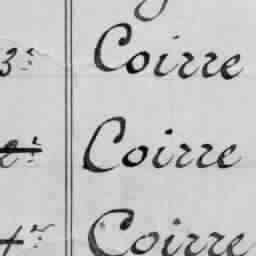 3: Coirre
Coirre
Coirre